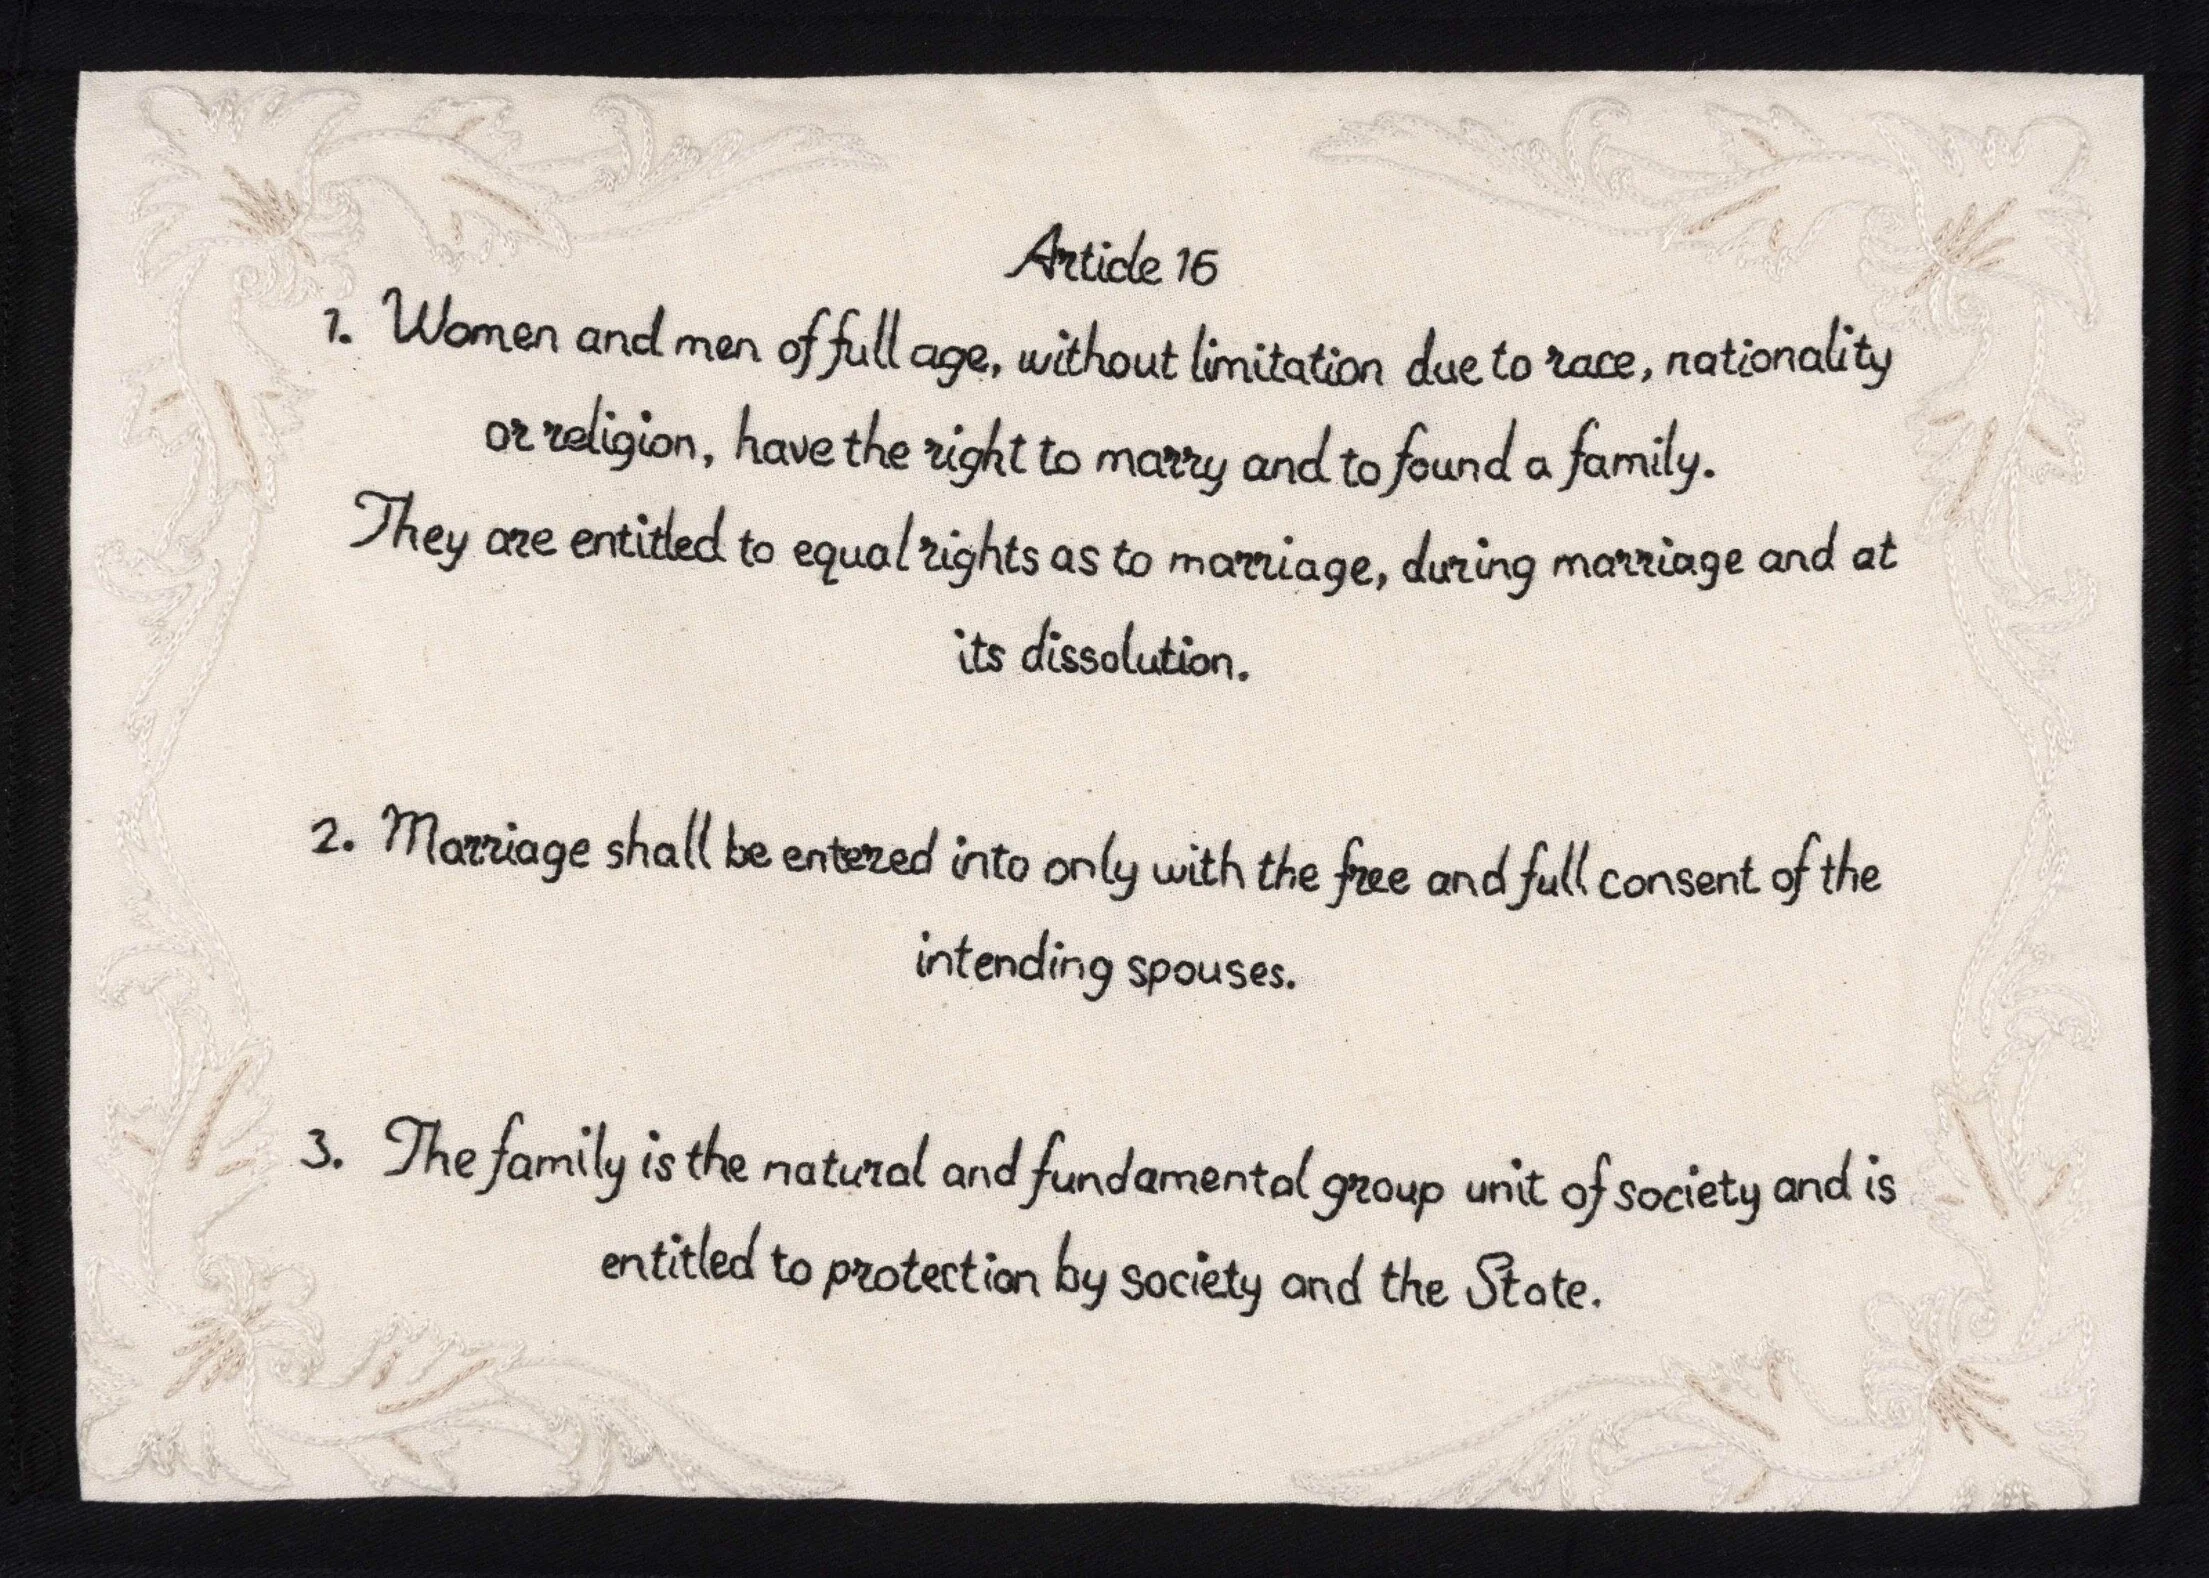 Article 16
1. Women and men of full age, without limitation due to race, nationality
or religion, have the right to marry and to found a family.
They are entitled to equal rights as to marriage, during marriage and at
its dissolution.
2. Marriage shall be entered into only with the free and full consent of the
intending spouses.
3. The family is the natural and fundamental group unit of society and is
entitled to protection by society and the State.